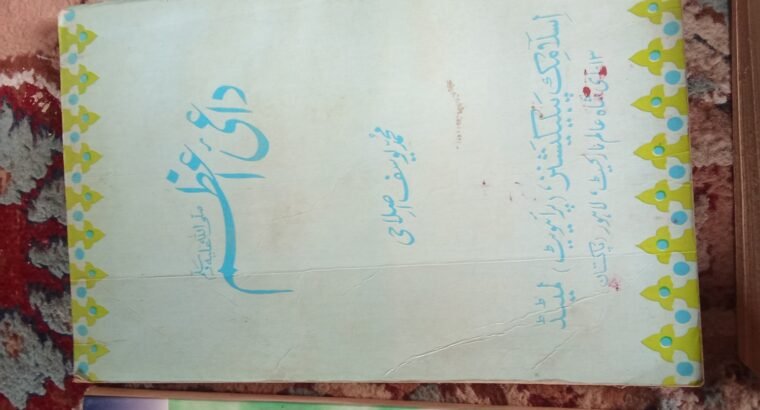 داعیِ اعظم
صلی اللہ علیہ وسلم
محمد یوسف اصلاحی
اسلامک پبلیکیشنز (پرائیویٹ) لمیٹڈ
۱۳-ای شاہ عالم مارکیٹ، لاہور (پاکستان)